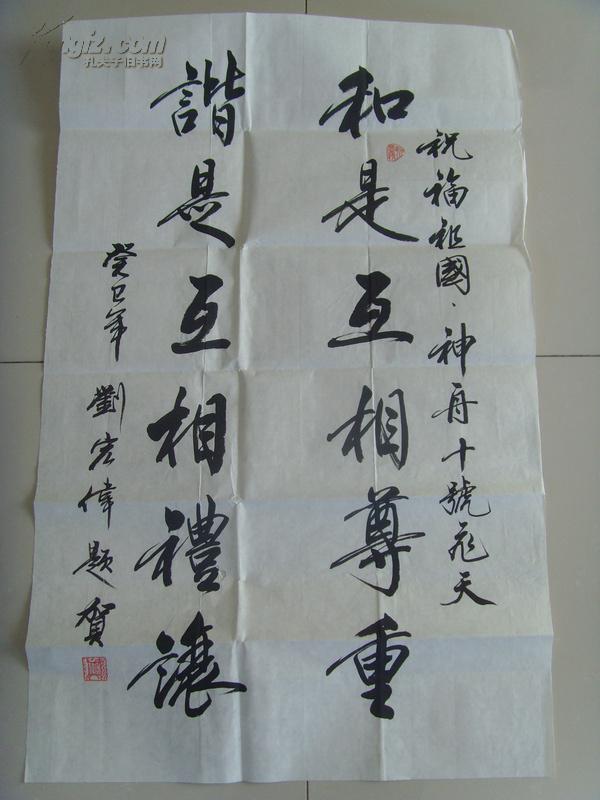 祝福祖國·神舟十號飛天
和是互相尊重
諧是互相禮讓
癸巳年 劉宏偉題賀
孔夫子旧书网